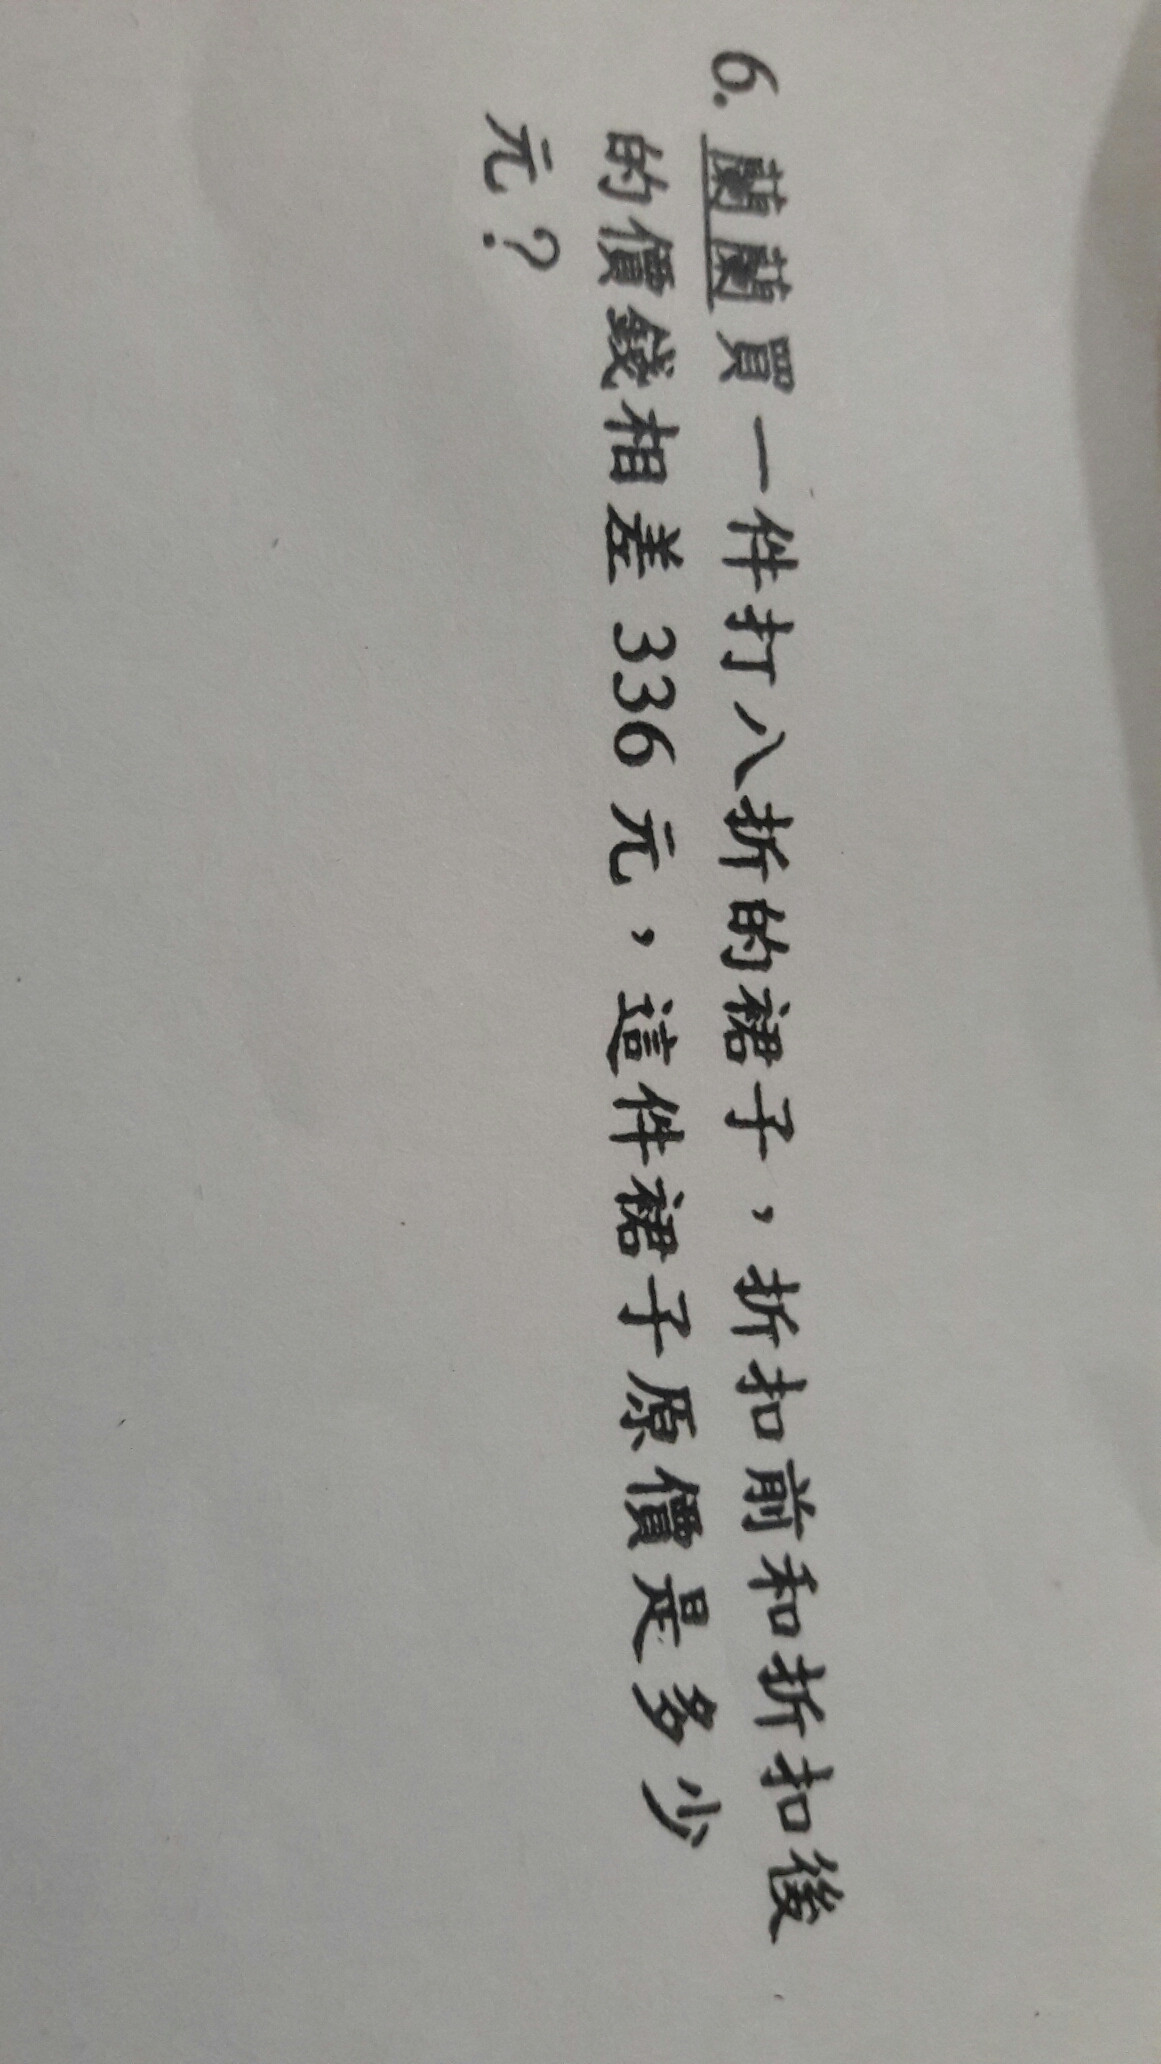 6. 蘭蘭買一件打八折的裙子，折扣前和折扣後
的價錢相差 336 元，這件裙子原價是多少
元？